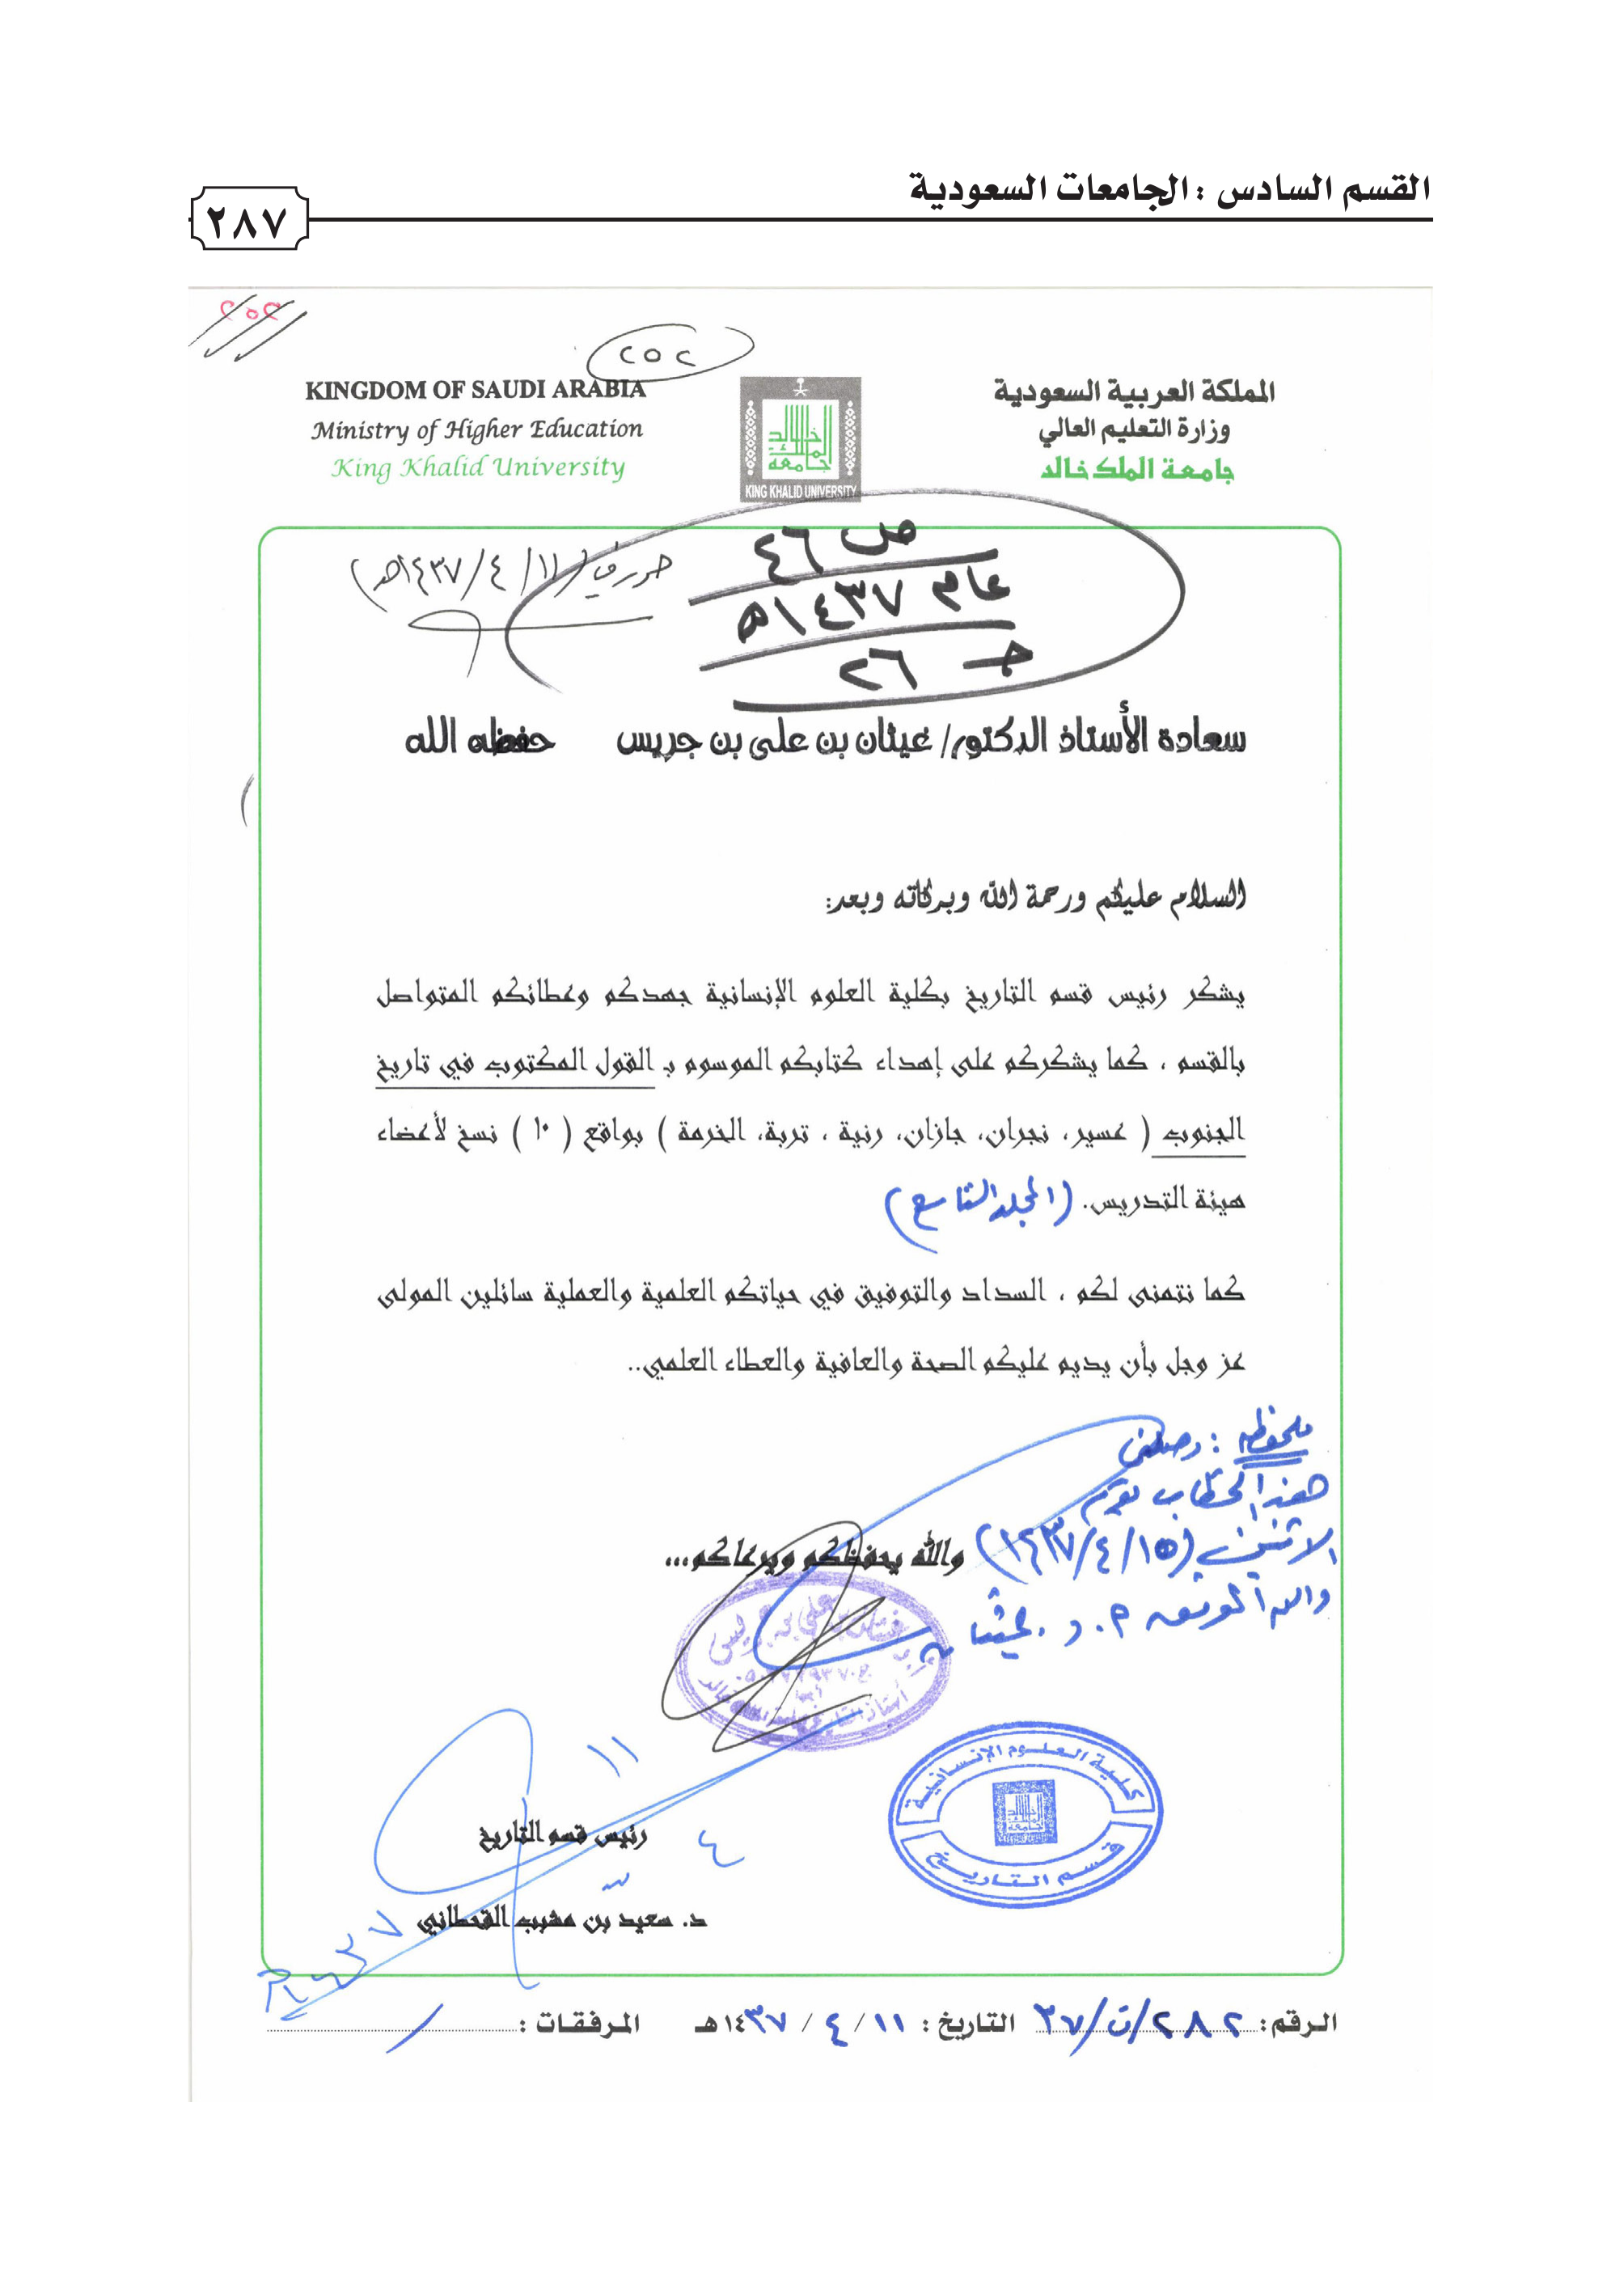 القسم السادس : الجامعات السعودية
٢٨٧
٢٥٢
٢٥٢
KINGDOM OF SAUDI ARABIA
Ministry of Higher Education
King Khalid University
KING KHALID UNIVERSITY
المملكة العربية السعودية
وزارة التعليم العالي
جامعة الملك خالد
ص ٤٦
عام ١٤٣٧هـ
جـ ٢٦
١١/ ٤/ ١٤٣٧هـ)
سعادة الأستاذ الدكتور/ غيثان بن علي بن جريس حفظه الله
السلام عليكم ورحمة الله وبركاته وبعد:
يشكر رئيس قسم التاريخ بكلية العلوم الإنسانية جهدكم وعطائكم المتواصل
بالقسم ، كما يشكركم على إهداء كتابكم الموسوم بـ القول المكتوب في تاريخ
الجنوب ( عسير، نجران، جازان، رنية ، تربة، الخرمة ) بواقع ( ١٠ ) نسخ لأعضاء
هيئة التدريس. (المجلد التاسع)
كما نتمنى لكم ، السداد والتوفيق في حياتكم العلمية والعملية سائلين المولى
عز وجل بأن يديم عليكم الصحة والعافية والعطاء العلمي..
ملحوظة : وصلني
هذا الخطاب يوم
الاثنين (١٥/٤/١٤٣٧)
والله الموفق
والله يحفظكم ويرعاكم...
غيثان بن علي بن جريس
كلية العلوم الإنسانية
قسم التاريخ
رئيس قسم التاريخ
د. سعيد بن مشبب القحطاني
١١
٤
الرقم: ٢٨٢/ت/٣٧ التاريخ : ١١ / ٤ / ١٤٣٧هـ المرفقات : /